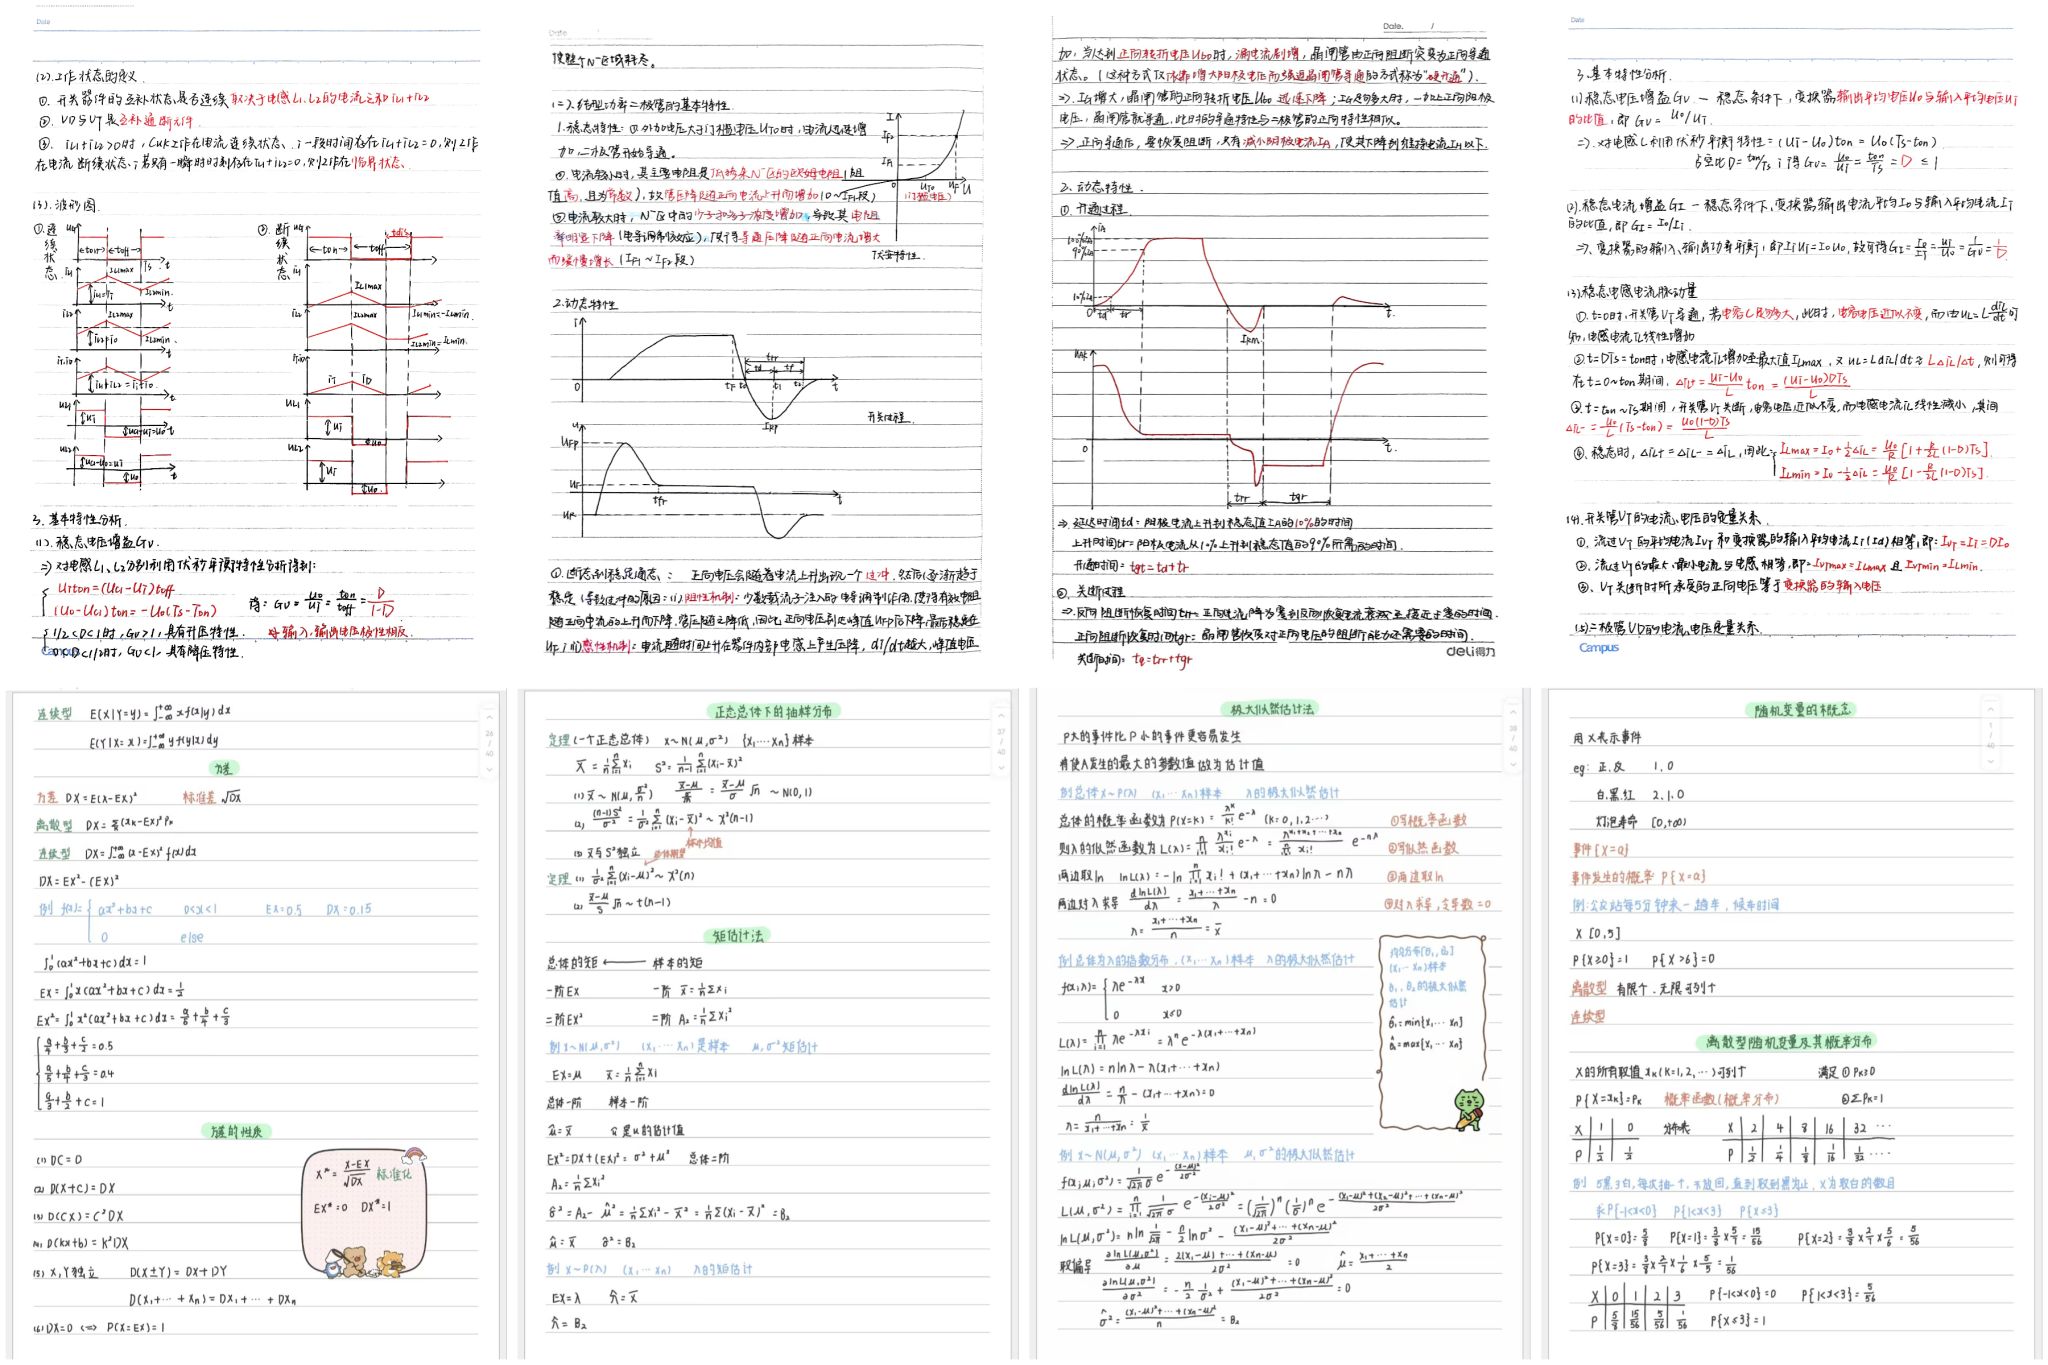 Date
(2).工作状态的定义
①. 开关器件的互补状态是否连续取决于电感L1、L2的电流之和iL1+iL2
②. VD与VT是互补通断元件.
③. iL1+iL2>0时，Cuk工作在电流连续状态、；一段时间存在iL1+iL2=0,则工作
在电流断续状态；若只有一瞬时时刻存在iL1+iL2=0,则工作临界状态、
(3).波形图.
①连续状态.
②.断续状态.
3.基本特性分析.
(1).稳态电压增益Gv.
⇒ 对电感L1、L2分别利用伏秒平衡特性分析得到:
UIton=(Uc1-UI)toff
(Uo-Uc1)ton=-Uo(Ts-Ton)
得: Gv= Uo/UI = ton/toff = D/1-D
1/2<D<1时, Gv>1, 具有升压特性.
且输入、输出电压极性相反.
0<D<1/2时, Gv<1, 具有降压特性.
Campus
Date
使整个N⁻区域耗尽。
(二)、结型功率二极管的基本特性.
1.稳态特性: ①外加电压大于门槛电压UTO时,电流迅速增
加,二极管开始导通。
值高,且为常数),故管压降随正向电流上升而增加(0~IF1段)
②电流较大时, N⁻区中的少子和多子浓度增加,导致其电阻
率明显下降(电导调制效应),使得导通压降随正向电流增大
而缓慢增长 (IF1~IF2段)
(门槛电压)
伏安特性.
2.动态特性
开关过程.
①. 断态到稳定通态、: 正向电压会随着电流上升出现一个过冲,然后逐渐趋于
随正向电流的上升而下降,管压降随之降低,因此,正向电压到达峰值UFP后下降,最后稳定在
UF; (ii)感性机制: 电流随时间上升在器件内部电感上产生压降, di/dt越大,峰值电压
Date. /
加,当达到正向转折电压Ubo时,漏电流剧增,晶闸管由正向阻断突变为正向导通
状态。(这种方式仅依靠增大阳极电压而强迫晶闸管导通的方式称为"硬开通").
⇒. IG增大,晶闸管的正向转折电压Ubo 迅速下降; IG足够大时,一加上正向阳极
电压,晶闸管就导通,此时的导通特性与二极管的正向特性相似。
⇒. 正向导通后,要恢复阻断,只有减小阳极电流IA,使其下降到维持电流IH以下.
2. 动态特性.
①. 开通过程.
⇒. 延迟时间td: 阳极电流上升到稳态值IA的10%的时间
上升时间tr: 阳极电流从10%上升到稳态值的90%所需的时间.
开通时间: tgt=td+tr
②. 关断过程
⇒. 反向阻断恢复时间trr: 正向电流降为零到反向恢复电流衰减至接近于零的时间.
正向阻断恢复时间tgr: 晶闸管恢复对正向电压的阻断能力还需要的时间.
关断时间: tq=trr+tgr
deli得力
Date
3.基本特性分析.
(1)稳态电压增益Gv — 稳态条件下,变换器输出平均电压Uo与输入平均电压UI
的比值,即 Gv=Uo/UI.
⇒. 对电感L利用伏秒平衡特性⇒(UI-Uo)ton=Uo(Ts-ton)
占空比D=ton/Ts; 得Gv= Uo/UI = ton/Ts = D ≤ 1
(2).稳态电流增益GI — 稳态条件下,变换器输出电流平均Io与输入平均电流II
的比值,即GI=Io/II.
⇒. 变换器的输入、输出功率平衡,即IIUI=IoUo,故可得GI= Io/II = UI/Uo = 1/Gv = 1/D
(3)稳态电感电流脉动量
①. t=0时,开关管VT导通,若电容C足够大,此时,电容电压近似不变,而由UL=L diL/dt可
知,电感电流iL线性增加
②t=DTs=ton时,电感电流iL增加至最大值ILmax, 又UL=LdiL/dt≈L△iL/△t,则可得
在t=0~ton期间, △iL+= UI-Uo/L ton = (UI-Uo)DTs/L
③ t=ton~Ts期间,开关管VT关断,电容电压近似不变,而电感电流iL线性减小,其间
△iL-= Uo/L(Ts-ton)= Uo(1-D)Ts/L
④. 稳态时, △iL+=△iL-=△iL, 因此: ILmax=Io+1/2△iL= Uo/R[1+R/2L(1-D)Ts].
ILmin=Io-1/2△iL= Uo/R[1-R/2L(1-D)Ts].
(4). 开关管VT的电流、电压的定量关系.
①. 流过VT的平均电流IVT和变换器的输入平均电流II(Id)相等,即: IVT=II=DIo
②. 流过VT的最大、最小电流与电感相等,即: IVTmax=ILmax 且 IVTmin=ILmin.
③. VT关断时所承受的正向电压等于变换器的输入电压
(5)二极管VD的电流、电压定量关系.
Campus
连续型 E(X|Y=y)=∫₋∞⁺∞ xf(x|y)dx
E(Y|X=x)=∫₋∞⁺∞ yf(y|x)dy
26/40
方差
方差 DX=E(X-EX)² 标准差 √DX
离散型 DX=Σ(xk-EX)²Pk
连续型 DX=∫₋∞⁺∞(x-EX)²f(x)dx
DX=EX²-(EX)²
例 f(x)={ ax²+bx+c 0<x<1 EX=0.5 DX=0.15
0 else
∫₀¹(ax²+bx+c)dx=1
EX=∫₀¹x(ax²+bx+c)dx=1/2
EX²=∫₀¹x²(ax²+bx+c)dx=a/5+b/4+c/3
a/4+b/3+c/2=0.5
a/5+b/4+c/3=0.4
a/3+b/2+c=1
方差的性质
(1) DC=0
(2) D(X+C)=DX
(3) D(CX)=C²DX
(4) D(kx+b)=K²DX
(5) X,Y独立 D(X±Y)=DX+DY
D(X₁+⋯+Xn)=DX₁+⋯+DXn
(6) DX=0 ⟺ P(X=EX)=1
X*= X-EX/√DX 标准化
EX*=0 DX*=1
正态总体下的抽样分布
37/40
定理 (一个正态总体) X~N(μ,σ²) {X₁,⋯Xn}样本
X̄=1/n ΣXi S²=1/n-1 Σ(Xi-X̄)²
(1) X̄~N(μ,σ²/n) X̄-μ/(σ/√n) = X̄-μ/σ √n ~N(0,1)
(2) (n-1)S²/σ² = 1/σ² Σ(Xi-X̄)²~χ²(n-1)
样本均值
(3) X̄与S²独立 总体期望
定理 (1) 1/σ² Σ(Xi-μ)²~χ²(n)
(2) X̄-μ/S √n~t(n-1)
矩估计法
总体的矩 ← 样本的矩
一阶EX 一阶 X̄=1/nΣXi
二阶EX² 二阶 A₂=1/nΣXi²
例 X~N(μ,σ²) (X₁,⋯Xn)是样本 μ,σ²矩估计
EX=μ X̄=1/nΣXi
总体一阶 样本一阶
μ̂=X̄ μ̂是μ的估计值
EX²=DX+(EX)²=σ²+μ² 总体二阶
A₂=1/nΣXi²
σ̂²=A₂-μ̂²=1/nΣXi²-X̄²=1/nΣ(Xi-X̄)²=B₂
μ̂=X̄ σ̂²=B₂
例 X~P(λ) (X₁,⋯Xn) λ的矩估计
EX=λ λ̂=X̄
λ̂=B₂
极大似然估计法
38/40
P大的事件比P小的事件更容易发生
将使A发生的最大的参数值做为估计值
例 总体X~P(λ) (X₁,⋯Xn)样本 λ的极大似然估计
总体的概率函数为P(X=K)=λᴷ/K! e^-λ (K=0,1,2⋯) ①写概率函数
则λ的似然函数为L(λ)=∏ λ^xi/xi! e^-λ = λ^(x₁+x₂+⋯+xn)/∏xi! e^-nλ ②写似然函数
两边取ln lnL(λ)=-ln∏xi!+(x₁+⋯+xn)lnλ-nλ ③两边取ln
两边对λ求导 dlnL(λ)/dλ = x₁+⋯+xn/λ -n=0 ④对λ求导,令导数=0
λ= x₁+⋯+xn/n = X̄
例 总体为λ的指数分布,(X₁,⋯Xn)样本 λ的极大似然估计
f(x,λ)={ λe^-λx x>0
0 x≤0
L(λ)=∏λe^-λxi=λⁿe^-λ(x₁+⋯+xn)
lnL(λ)=nlnλ-λ(x₁+⋯+xn)
dlnL(λ)/dλ = n/λ-(x₁+⋯+xn)=0
λ= n/x₁+⋯+xn = 1/X̄
均匀分布[θ₁,θ₂]
(X₁⋯Xn)样本
θ₁、θ₂的极大似然
估计
θ̂₁=min{X₁,⋯Xn}
θ̂₂=max{X₁,⋯Xn}
例 X~N(μ,σ²) (X₁,⋯Xn)样本 μ,σ²的极大似然估计
f(x;μ,σ²)=1/√2πσ e^-(x-μ)²/2σ²
L(μ,σ²)=∏ 1/√2πσ e^-(xi-μ)²/2σ² =(1/√2π)ⁿ(1/σ)ⁿ e^-(x₁-μ)²+(x₂-μ)²+⋯+(xn-μ)²/2σ²
lnL(μ,σ²)=nln 1/√2π - n/2 lnσ² - (x₁-μ)²+⋯+(xn-μ)²/2σ²
取偏导 ∂lnL(μ,σ²)/∂μ = 2(x₁-μ)+⋯+(xn-μ)/2σ² =0 μ̂= x₁+⋯+xn/2
∂lnL(μ,σ²)/∂σ² = -n/2 1/σ² + (x₁-μ)²+⋯+(xn-μ)²/2σ² =0
σ̂²= (x₁-μ)²+⋯+(xn-μ)²/n =B₂
随机变量的概念
1/40
用X表示事件
eg: 正.反 1.0
白.黑.红 2.1.0
灯泡寿命 [0,+∞)
事件{X=a}
事件发生的概率 P{X=a}
例:公交站每5分钟来一趟车，候车时间
X [0,5]
P{X≥0}=1 P{X>6}=0
离散型 有限个.无限可列个
连续型
离散型随机变量及其概率分布
X的所有取值xk(K=1,2,⋯)可列个 满足 ①Pk≥0
P{X=xk}=Pk 概率函数(概率分布) ②ΣPk=1
X 1 0 分布表 X 2 4 8 16 32 ⋯
P 1/2 1/2 P 1/2 1/4 1/8 1/16 1/32 ⋯
例 5黑3白,每次抽一个,不放回,直到取到黑为止,X为取白的数目
求P{-1<X<0} P{1<X<3} P{X≤3}
P{X=0}=5/8 P{X=1}=3/8×5/7=15/56 P{X=2}=3/8×2/7×5/6=5/56
P{X=3}=3/8×2/7×1/6×5/5=1/56
X 0 1 2 3 P{-1<X<0}=0 P{1<X<3}=5/56
P 5/8 15/56 5/56 1/56 P{X≤3}=1